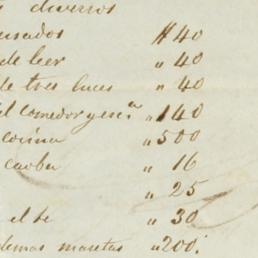 diversos
usados $40
de leer " 40
de tres luces " 40
el comedor y esc.a " 140
cocina " 500
caoba " 16
" 25
el te " 30
demas macetas " 200.